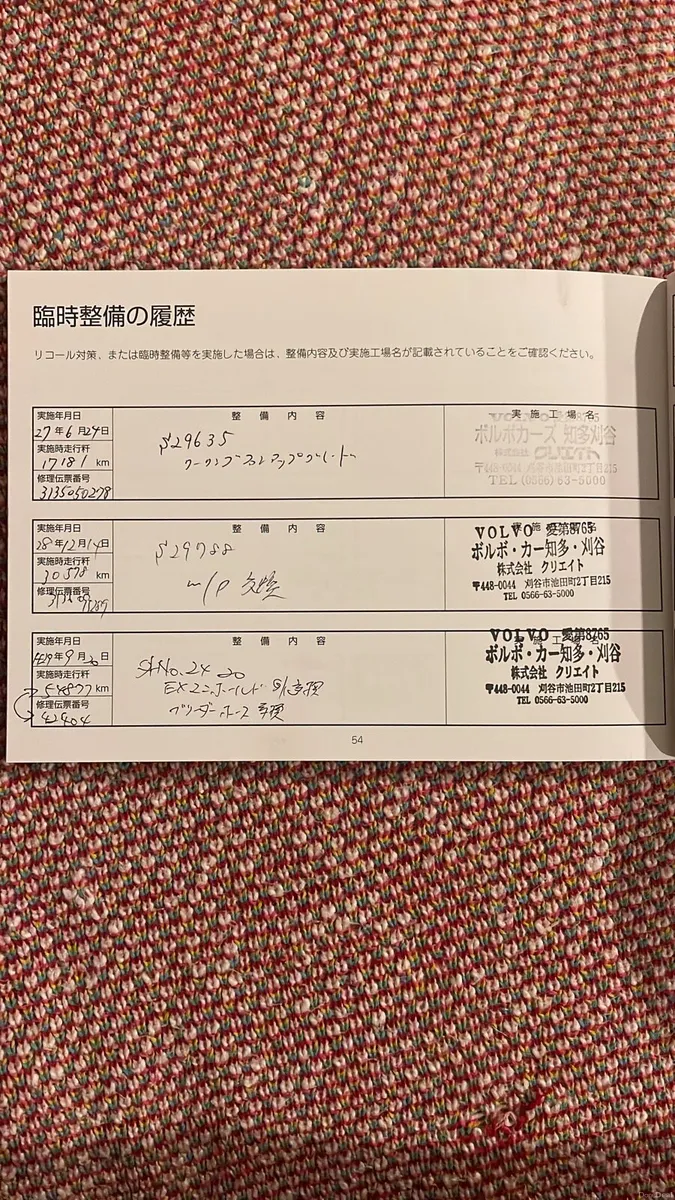 臨時整備の履歴
リコール対策、または臨時整備等を実施した場合は、整備内容及び実施工場名が記載されていることをご確認ください。
実施年月日
27年6月24日
実施時走行杆
17181 km
修理伝票番号
3135050278
整備内容
S29635
実施工場名
ボルボカーズ 知多刈谷
株式会社 クリエイト
〒448-0044 刈谷市池田町2丁目215
TEL (0566) 63-5000
実施年月日
28年12月14日
実施時走行杆
30578 km
修理伝票番号
整備内容
S29788
W/P 交換
VOLVO 愛第8765
ボルボ・カー知多・刈谷
株式会社 クリエイト
〒448-0044 刈谷市池田町2丁目215
TEL 0566-63-5000
実施年月日
年9月20日
実施時走行杆
54877 km
修理伝票番号
42404
整備内容
EXマニホールド
ブリーダーホース
VOLVO 愛第8765
ボルボ・カー知多・刈谷
株式会社 クリエイト
〒448-0044 刈谷市池田町2丁目215
TEL 0566-63-5000
54